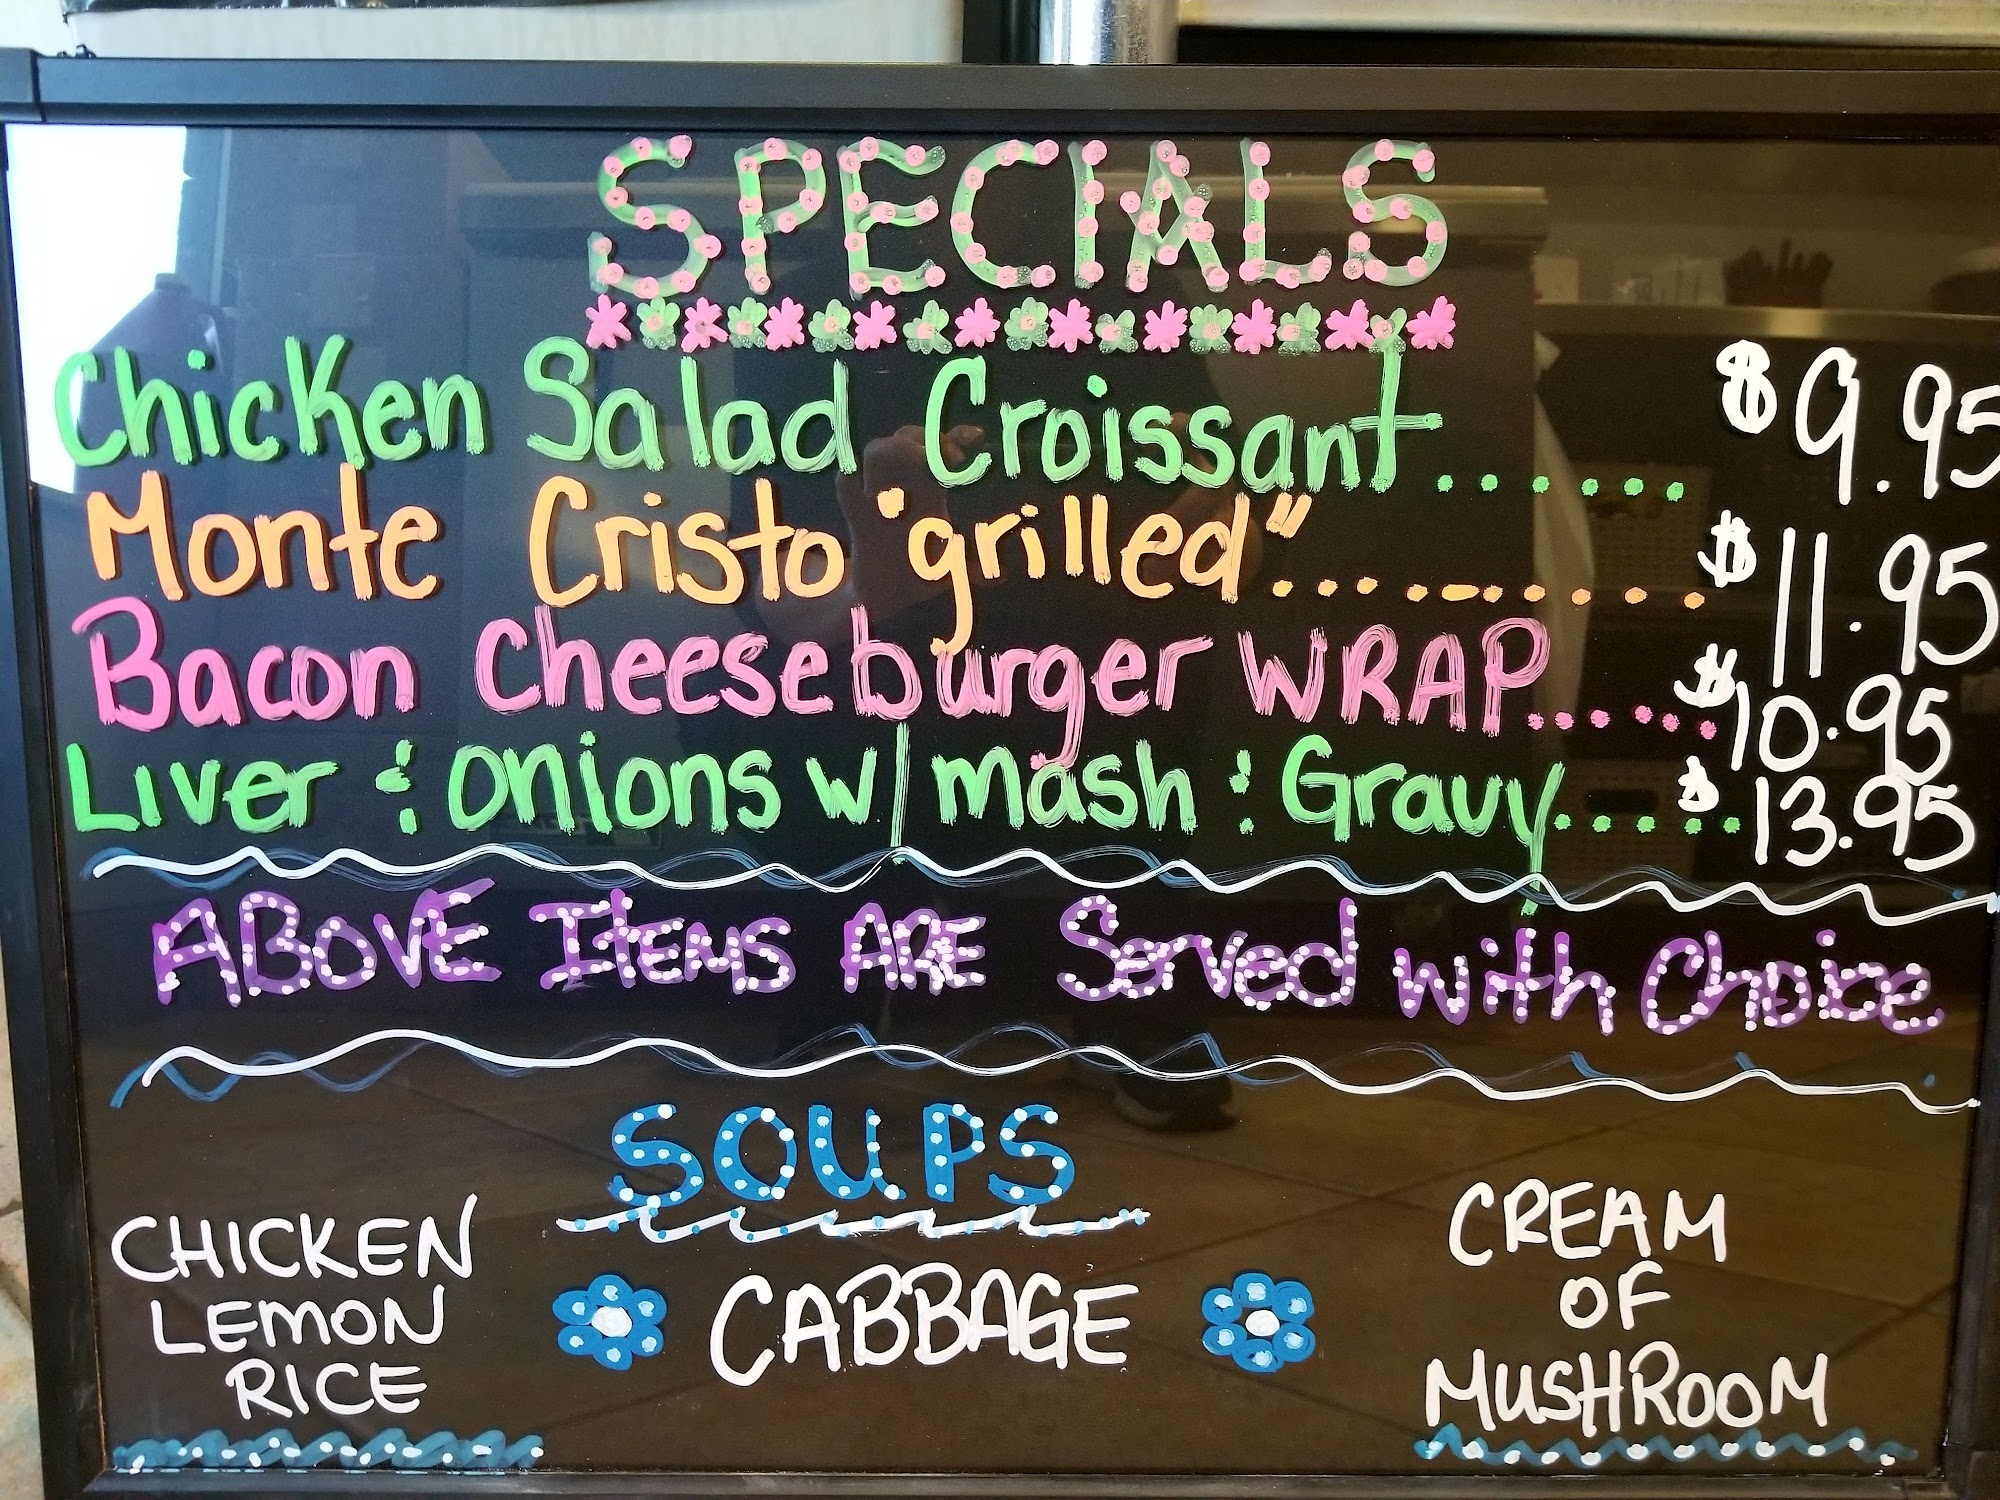 SPECIALS
Chicken Salad Croissant...... $9.95
Monte Cristo "grilled"......... $11.95
Bacon Cheeseburger WRAP..... $10.95
Liver & Onions w/ mash & Gravy..... $13.95
ABOVE ITEMS ARE Served with Choice
SOUPS
CHICKEN
LEMON
RICE
CABBAGE
CREAM
OF
MUSHROOM